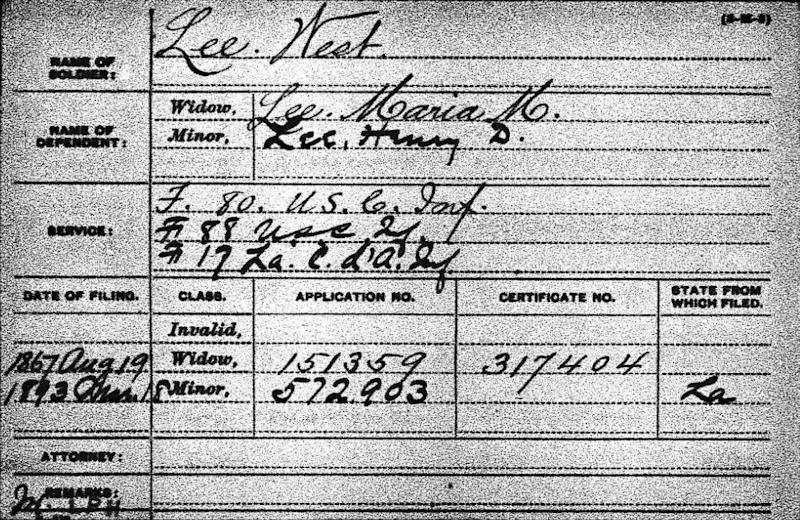 (3-M-3)
NAME OF SOLDIER: Lee. West.
NAME OF DEPENDENT: Widow, Lee. Maria M.
Minor, Lee, Henry D.
SERVICE: F. 80. U.S. C. Inf.
F 88 U.S.C. If
F 17 La. C. d'A. Inf
DATE OF FILING. CLASS. APPLICATION NO. CERTIFICATE NO. STATE FROM WHICH FILED.
Invalid,
1867 Aug 19 Widow, 151359 317404
1893 18 Minor, 572.903 La
ATTORNEY:
REMARKS: